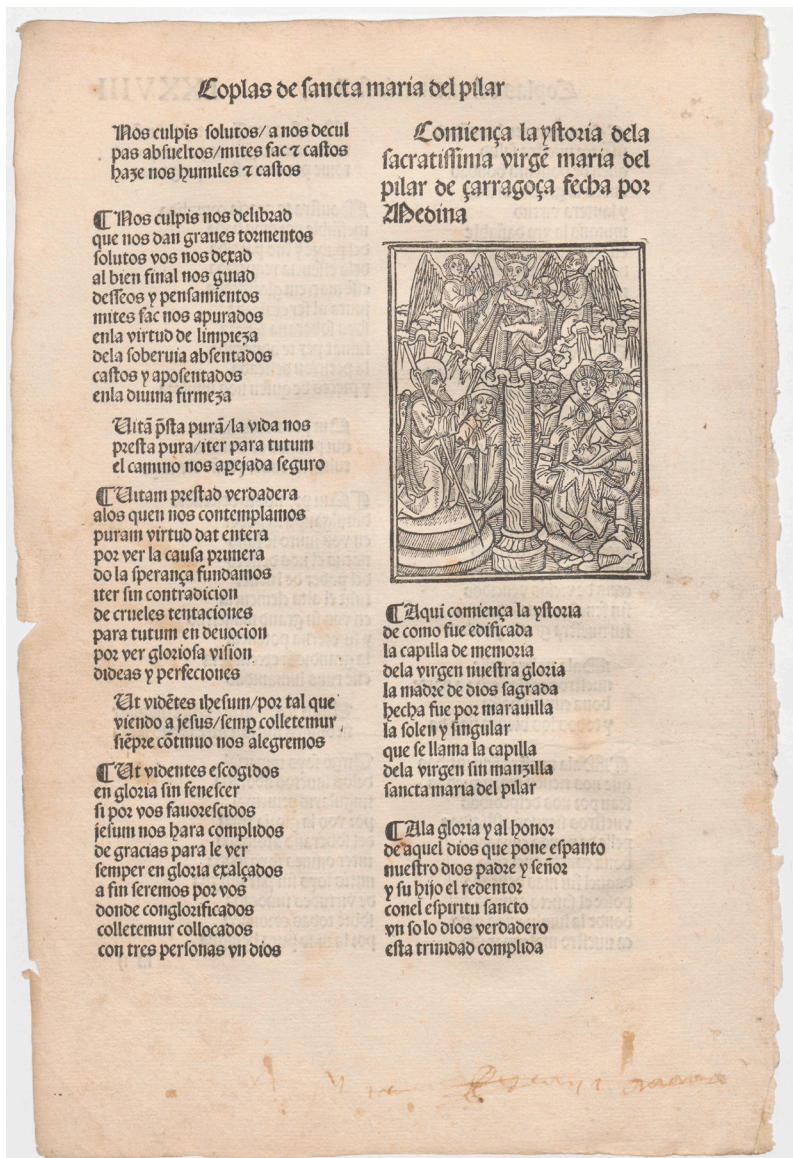 Coplas de sancta maria del pilar
Nos culpis solutos/ a nos decul
pas absueltos/mites fac ⁊ castos
haze nos humiles ⁊ castos
¶Nos culpis nos delibrad
que nos dan graues tormentos
solutos vos nos dexad
al bien final nos guiad
desseos y pensamientos
mites fac nos apurados
enla virtud de limpieza
dela soberuia absentados
castos y aposentados
enla diuina firmeza
Uitã p̃sta purã/la vida nos
presta pura/iter para tutum
el camino nos aꝑejada seguro
¶Uitam prestad verdadera
alos quen nos contemplamos
puram virtud dat entera
por ver la causa primera
do la sperança fundamos
iter sin contradicion
de crueles tentaciones
para tutum en deuocion
por ver gloriosa vision
dideas y perfeciones
Ut vidẽtes ihesum/por tal que
viendo a jesus/semꝑ colletemur
siẽpre cõtinuo nos alegremos
¶Ut videntes escogidos
en gloria sin fenescer
si por vos fauorescidos
jesum nos hara complidos
de gracias para le ver
semper en gloria exalçados
a fin seremos por vos
donde conglorificados
colletemur collocados
con tres personas vn dios
Comiença la ystoria dela
sacratissima virgẽ maria del
pilar de çarragoça fecha por
Medina
¶Aqui comiença la ystoria
de como fue edificada
la capilla de memoria
dela virgen nuestra gloria
la madre de dios sagrada
hecha fue por marauilla
la solen y singular
que se llama la capilla
dela virgen sin manzilla
sancta maria del pilar
¶Ala gloria y al honor
de aquel dios que pone espanto
nuestro dios padre y señor
y su hijo el redentor
conel espiritu sancto
vn solo dios verdadero
esta trinidad complida